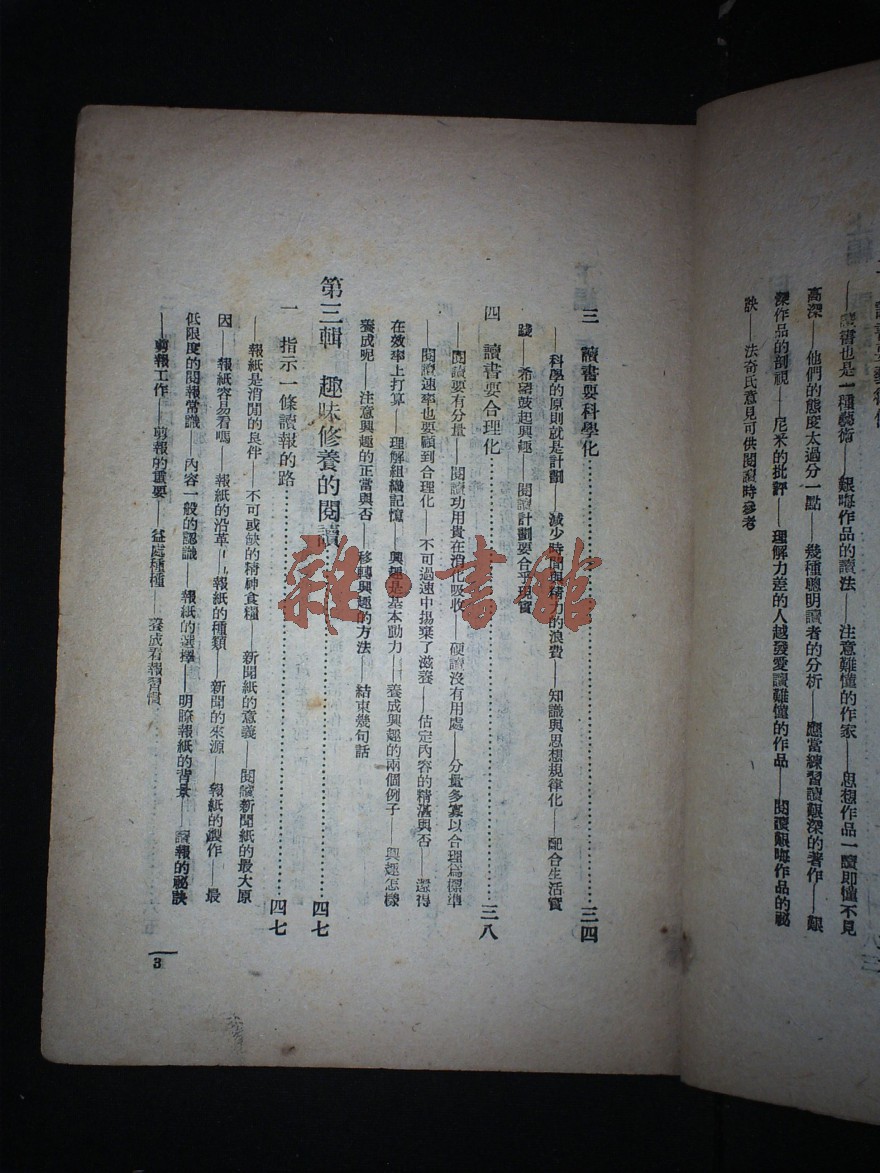 ——讀書也是一種藝術——艱晦作品的讀法——注意難懂的作家——思想作品一讀即懂不見
高深——他們的態度太過分一點——幾種聰明讀者的分析——應當練習讀艱深的著作——艱
深作品的剖視——尼米的批評——理解力差的人越發愛讀難懂的作品——閱讀艱晦作品的祕
訣——法奇氏意見可供閱讀時參考
三 讀書要科學化……三四
——科學的原則就是計劃——減少時間與精力的浪費——知識與思想規律化——配合生活實
踐——希望鼓起興趣——閱讀計劃要合乎現實
四 讀書要合理化……三八
——閱讀要有分量——閱讀功用貴在消化吸收——硬讀沒有用處——分量多寡以合理爲標準
——閱讀速率也要顧到合理化——不可過速中揚棄了滋養——估定內容的精湛與否——還得
在效率上打算——理解組織記憶——興趣是基本動力——養成興趣的兩個例子——興趣怎樣
養成呢——注意興趣的正當與否——移轉興趣的方法——結束幾句話
第三輯 趣味修養的閱讀……四七
一 指示一條讀報的路……四七
——報紙是消閒的良伴——不可或缺的精神食糧——新聞紙的意義——閱讀新聞紙的最大原
因——報紙容易看嗎——報紙的沿革——報紙的種類——新聞的來源——報紙的製作——最
低限度的閱報常識——內容一般的認識——報紙的選擇——明瞭報紙的背景——讀報的祕訣
——剪報工作——剪報的重要——益處種種——養成看報習慣
3
雜·書館